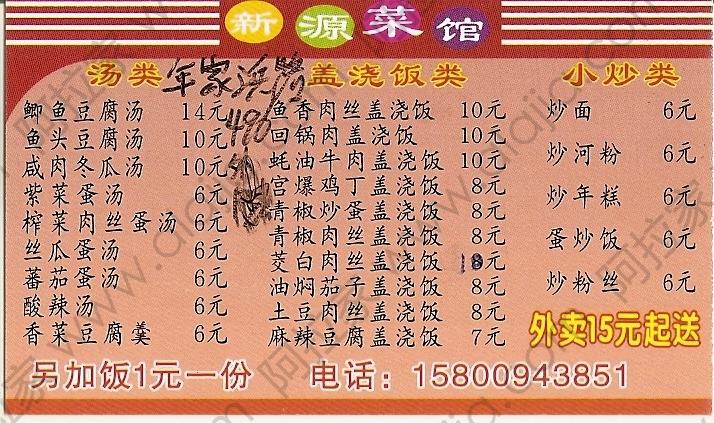 新源菜馆
汤类
鲫鱼豆腐汤 14元
鱼头豆腐汤 10元
咸肉冬瓜汤 10元
紫菜蛋汤 6元
榨菜肉丝蛋汤 6元
丝瓜蛋汤 6元
蕃茄蛋汤 6元
酸辣汤 6元
香菜豆腐羹 6元
车家浜路
496
盖浇饭类
鱼香肉丝盖浇饭 10元
回锅肉盖浇饭 10元
蚝油牛肉盖浇饭 10元
宫爆鸡丁盖浇饭 8元
青椒炒蛋盖浇饭 8元
青椒肉丝盖浇饭 8元
茭白肉丝盖浇饭 18元
油焖茄子盖浇饭 8元
土豆肉丝盖浇饭 8元
麻辣豆腐盖浇饭 7元
小炒类
炒面 6元
炒河粉 6元
炒年糕 6元
蛋炒饭 6元
炒粉丝 6元
外卖15元起送
另加饭1元一份 电话：15800943851
阿拉家 www.alajia.com